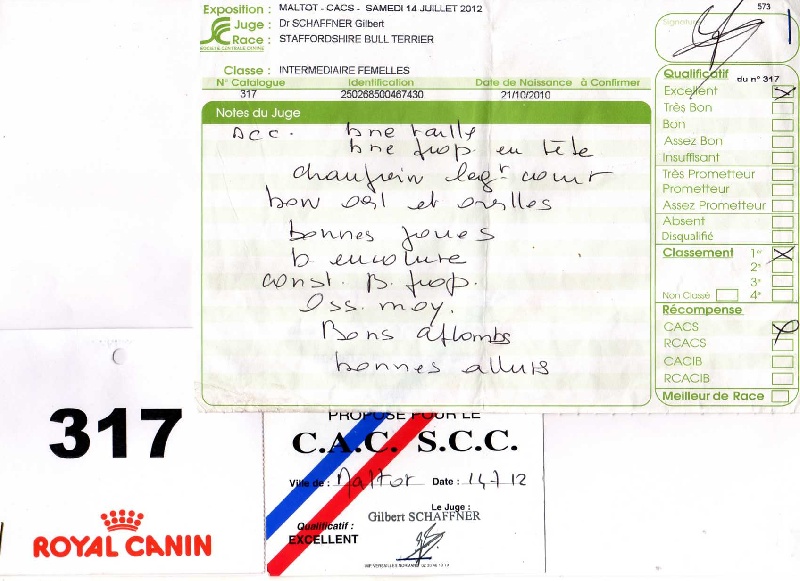 573
Exposition : MALTOT - CACS - SAMEDI 14 JUILLET 2012
Juge : Dr SCHAFFNER Gilbert
Race : STAFFORDSHIRE BULL TERRIER
SOCIETE CENTRALE CANINE
Signature
Classe : INTERMEDIAIRE FEMELLES
N° Catalogue Identification Date de Naissance à Confirmer
317 250268500467430 21/10/2010
Notes du Juge
Acc. bne taille
bne prop. en tête
chanfrein legt court
bon oeil et oreilles
bonnes joues
b encolure
const. B. prop.
Oss. moy.
Bons aplombs
bonnes allures
Qualificatif du n° 317
Excellent
Très Bon
Bon
Assez Bon
Insuffisant
Très Prometteur
Prometteur
Assez Prometteur
Absent
Disqualifié
Classement 1er
2e
3e
Non Classé 4e
Récompense
CACS
RCACS
CACIB
RCACIB
Meilleur de Race
317
ROYAL CANIN
PROPOSÉ POUR LE
C.A.C. S.C.C.
Ville de : Maltot Date : 14/7 12
Le Juge :
Gilbert SCHAFFNER
Qualificatif :
EXCELLENT